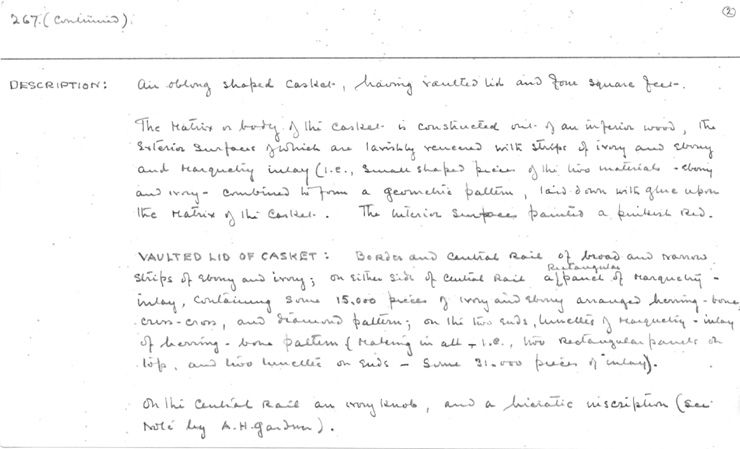 267. (Continued).
②
DESCRIPTION: An oblong shaped casket, having vaulted lid and four square feet.
The Matrix or body of the casket is constructed out of an inferior wood, the
Exterior surfaces of which are lavishly veneered with strips of ivory and ebony
and Marquetry inlay (i.e., small shaped pieces of the two materials - ebony
and ivory - combined to form a geometric pattern, laid down with glue upon
the Matrix of the casket. The interior surfaces painted a pinkish red.
VAULTED LID OF CASKET: Border and Central Rail of broad and narrow
strips of ebony and ivory; on either side of Central Rail a Rectangular panel of Marquetry-
inlay, containing some 15,000 pieces of ivory and ebony arranged herring-bone,
criss-cross, and diamond pattern; on the two ends, lunettes of Marquetry-inlay
of herring-bone pattern (Making in all - i.e., two Rectangular panels on
top, and two lunettes on ends - some 31,000 pieces of inlay).
On the Central Rail an ivory knob, and a hieratic inscription (see
Note by A.H. Gardiner).